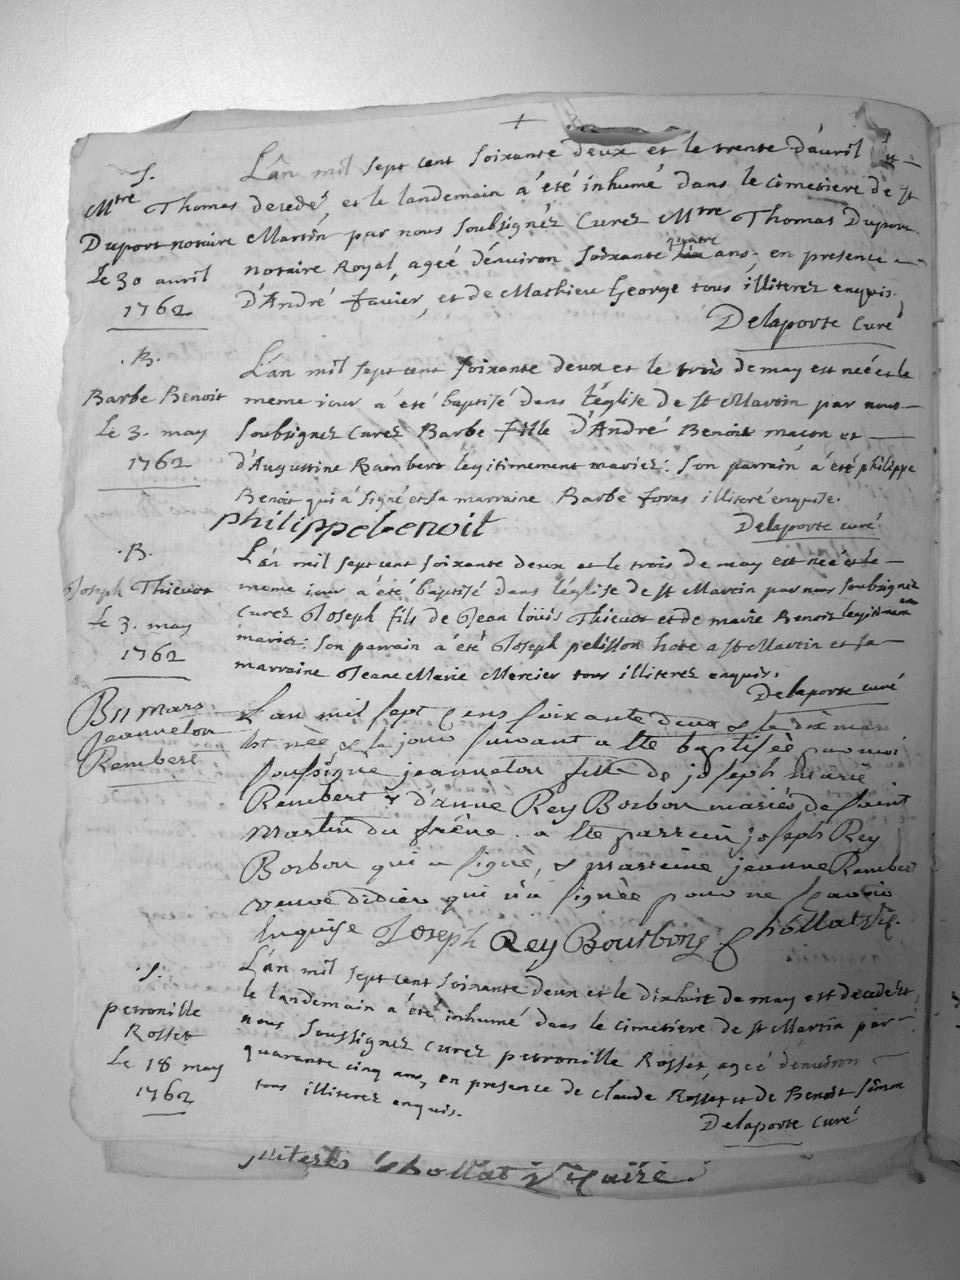 S.
Mtre Thomas
Duport notaire
Le 30 avril
1762
L'an mil sept cent soixante deux et le trente d'avril est
decedé, et le landemain a été inhumé dans le cimetiere de st
Martin par nous soubsignéz Curez Mtre Thomas Duport
notaire Royal, ageé d'environ soixante quatre ans, en presence
D'André Favier, et de Mathieu George tous illiterez enquis.
Delaporte Curé
.B.
Barbe Benoit
Le 3. may
1762
L'an mil sept cent soixante deux et le trois de may est néé et le
meme iour a été baptisé dans l'église de st Martin par nous
soubsignez Curez Barbe fille d'André Benoit macon et
d'Augustine Rambert légitimement mariez: son parrain a été philippe
Benoit qui a signé et sa marraine Barbe Foras illiteré enquise.
philippe benoit
Delaporte curé
.B.
Joseph Thievot
Le 3. may
1762
L'an mil sept cent soixante deux et le trois de may est néé et le
meme iour a été baptisé dans l'église de st Martin par nous soubsignez
Curez Joseph fils de Jean loüis Thievot et de marie Benoit legitimem
mariéz: son parrain a été Joseph pelisson hote a st Martin et sa
marraine Jeane Marie Mercier tous illiterez enquis.
Delaporte curé
B 11 mars
jeanneton
Rembert
L'an mil sept cens soixante deux & le dix mars
est née & le jour suivant a ete baptisée par moi
soussigne jeanneton fille de joseph marie
Rembert & d'anne Rey Borbon mariés de saint
martin du frêne. a ete parrein joseph Rey
Borbon qui a signè, & marreine jeanne Rembert
veuve didier qui n'a signée pour ne scavoir
Enquise Joseph Rey Bourbon Chollat vic.
.S.
petronille
Rosset
Le 18 may
1762
L'an mil sept cent soixante deux et le dixhuit de may est decedeéz,
le landemain a été inhumé dans le cimetiere de st Martin par
nous soussignez curez petronille Rosset, ageé d'environ
quarante cinq ans, en presence de claude Rosset et de Benoit Simon
tous illiterez enquis.
Delaporte Curé
Chollat vicaire.